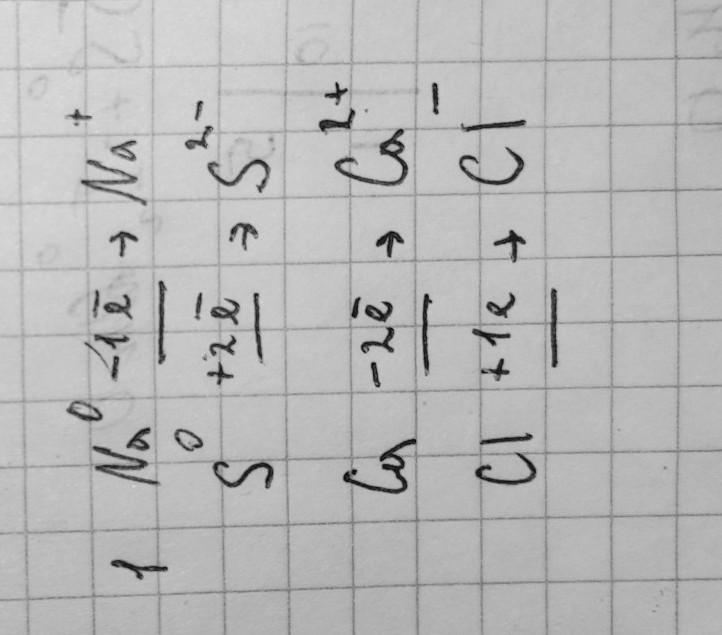 1 Na⁰ -1ē → Na⁺
S⁰ +2ē → S²⁻
Ca -2ē → Ca²⁺
Cl +1e → Cl⁻